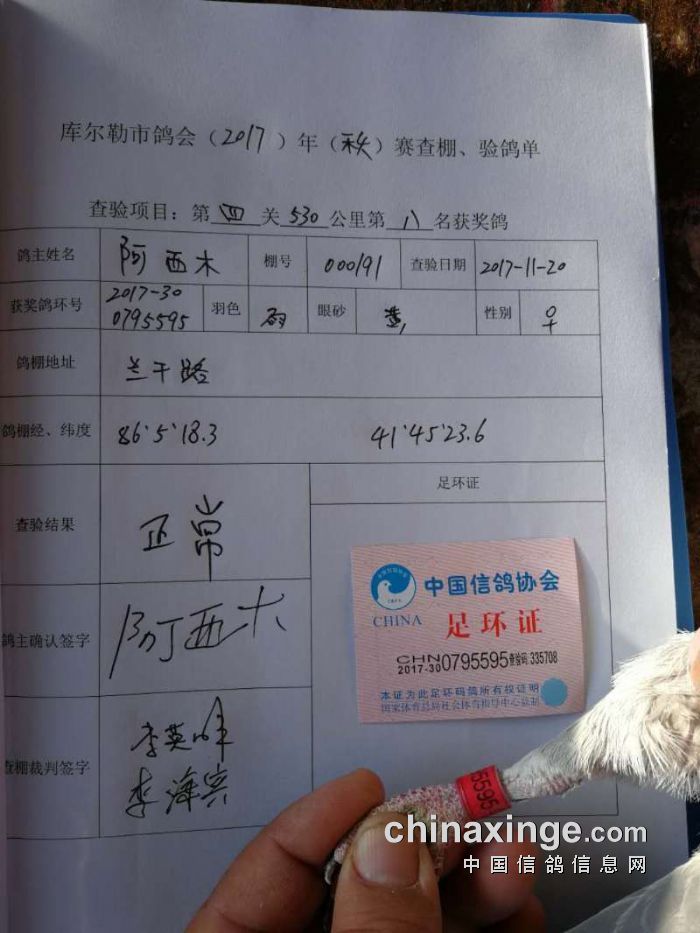 库尔勒市鸽会(2017)年(秋)赛查棚、验鸽单
查验项目：第四关530公里第八名获奖鸽
鸽主姓名 阿西木 棚号 000191 查验日期 2017-11-20
获奖鸽环号 2017-30 0795595 羽色 雨 眼砂 黄 性别 ♀
鸽棚地址 兰干路
鸽棚经、纬度 86°5'18.3 41°45'23.6
查验结果 正常
足环证
中国信鸽协会
CHINA 足环证
CHN 2017-30 0795595 查验码 335708
本证为此足环码鸽所有权证明
国家体育总局社会体育指导中心监制
鸽主确认签字 阿西木
查棚裁判签字 李英峰
李海宾
95595
chinaxinge.com
中国信鸽信息网